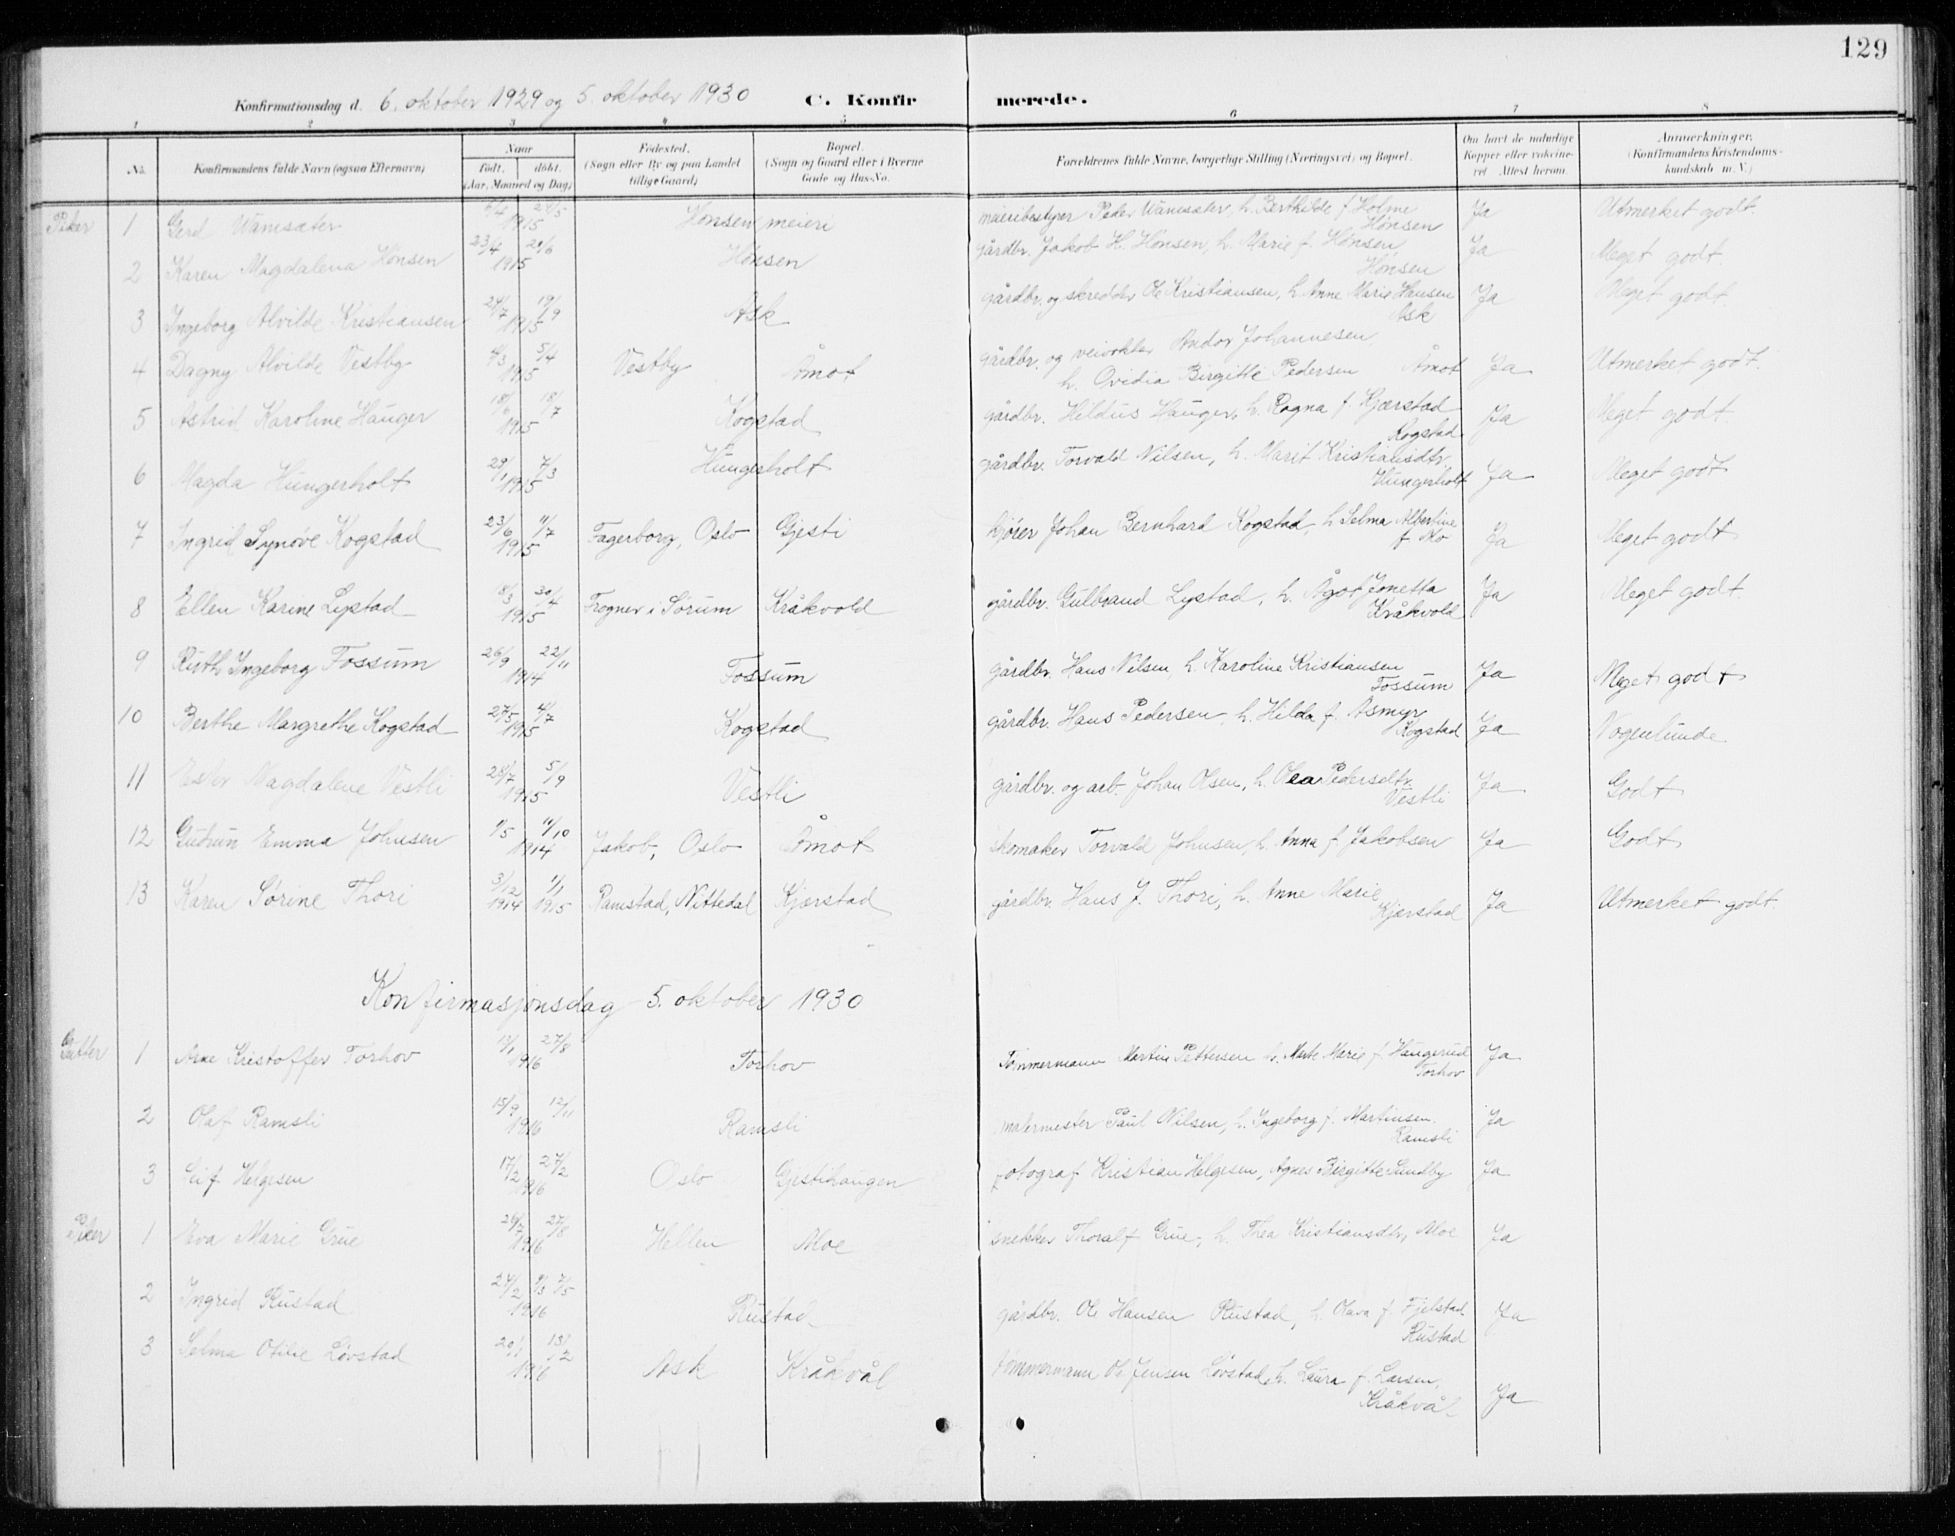 129
Konfirmationsdag d. 6. oktober 1929 og 5. oktober 1930 C. Konfirmerede.
1 2 3 4 5 6 7 8
No. Konfirmandens fulde Navn (ogsaa Efternavn) Naar født. døbt. (Aar, Maaned og Dag) Fødested. (Sogn eller By og paa Landet tillige Gaard) Bopæl. (Sogn og Gaard eller i Byerne Gade og Hus-No. Forældrenes fulde Navne, borgerlige Stilling (Næringsvei) og Bopæl. Om havt de naturlige Kopper eller vakcineret. Attest herom. Anmerkninger. (Konfirmandens Kristendomskundskab m. V.)
Piker 1 Gerd Wamsæter 6/4 24/5 1915 Hønsen meieri meieribestyrer Peder Wamsæter, h. Berthilde f. Holme Hønsen Ja Utmerket godt.
2 Karen Magdalena Hønsen 23/4 20/6 1915 Hønsen gårdbr. Jakob H. Hønsen, h. Marie f. Hønsen Hønsen Ja Meget godt.
3 Ingeborg Alvilde Kristiansen 24/7 19/9 1915 Ask gårdbr. og skredder Ole Kristiansen, h. Anne Marie Hansen Ask Ja Meget godt.
4 Dagny Alvilde Vestby 4/3 5/4 1915 Vestby Åmot gårdbr. og veivokter Andor Johannesen
h. Ovidia Birgitte Pedersen Åmot Ja Utmerket godt.
5 Astrid Karoline Hauger 18/6 18/7 1915 Kogstad gårdbr. Hildus Hauger, h. Ragna f. Kjærstad Kogstad Ja Meget godt.
6 Magda Hungerholt 29/1 7/3 1915 Hungerholt gårdbr. Torvald Nilsen, h. Marit Kristiansdtr. Hungerholt Ja Meget godt
7 Ingrid Synøve Kogstad 23/6 11/7 1915 Fagerborg, Oslo Gjesti kjører Johan Bernhard Kogstad, h. Selma Albertine f. Mo Ja Meget godt
8 Ellen Karine Lystad 18/3 30/4 1915 Frogner i Sørum Kråkvold gårdbr. Gulbrand Lystad, h. Ågot Jonetta Kråkvold Ja Meget godt
9 Ruth Ingeborg Fossum 26/9 22/11 1914 Fossum gårdbr. Hans Nilsen, h. Karoline Kristiansen Fossum Ja Meget godt
10 Berthe Margrethe Kogstad 27/5 4/7 1915 Kogstad gårdbr. Hans Pedersen, h. Hilda f. Asmyr Kogstad Ja Nogenlunde
11 Ester Magdalene Vestli 28/7 5/9 1915 Vestli gårdbr. og arb. Johan Olsen, h. Olea Pedersdtr. Vestli Ja Godt
12 Gudrun Emma Johnsen 1/5 11/10 1914 Jakob, Oslo Åmot skomaker Torvald Johnsen, h. Anna f. Jakobsen Ja Godt
13 Karen Sørine Thori 3/12 1914 1/1 1915 Ramstad, Nittedal Kjærstad gårdbr. Hans J. Thori, h. Anne Marie Kjærstad Ja Utmerket godt.
Konfirmasjonsdag 5. oktober 1930
Gutter 1 Arne Kristoffer Torhov 13/1 27/8 1916 Torhov Tømmermann Martin Pettersen h. Marte Marie f. Haugerud Torhov Ja
2 Olaf Ramsli 15/9 12/11 1916 Ramsli malermester Paul Nilsen, h. Ingeborg f. Martinsen. Ramsli Ja
3 Leif Helgesen 17/2 27/2 1916 Oslo Gjestihaugen fotograf Kristian Helgesen, Agnes Birgitte Sundby Ja
Piker 1 Eva Marie Grue 26/7 27/8 1916 Hellen Moe snekker Thoralf Grue, h. Thea Kristiansdtr, Moe Ja
2 Ingrid Rustad 24/2 7/5 1916 Rustad gårdbr. Ole Hansen Rustad, h. Olava f. Fjelstad Rustad Ja
3 Selma Otilie Løvstad 20/1 13/2 1916 Ask Kråkvål tømmermann Ole Jensen Løvstad, h. Laura f. Larsen, Kråkvål Ja